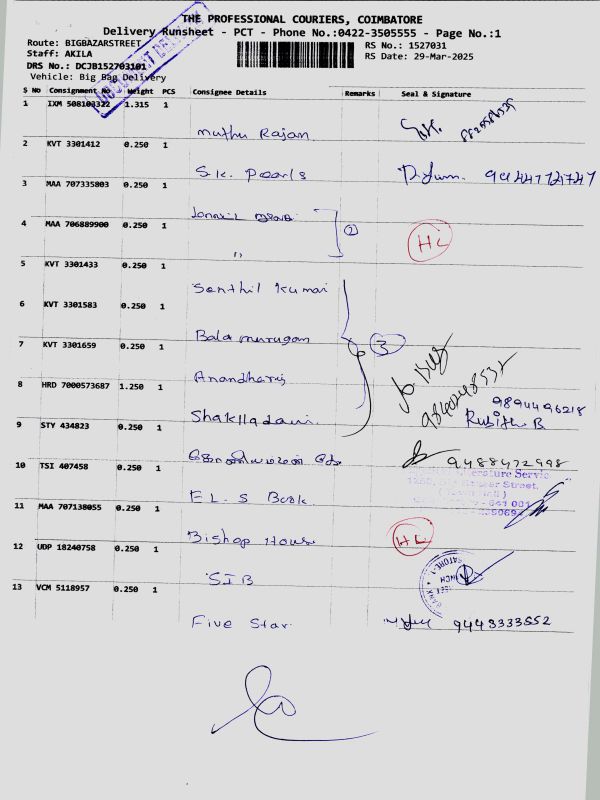 THE PROFESSIONAL COURIERS, COIMBATORE
Delivery Runsheet - PCT - Phone No.:0422-3505555 - Page No.:1
Route: BIGBAZARSTREET
Staff: AKILA
DRS No.: DCJB152703101
Vehicle: Big Bag Delivery
RS No.: 1527031
RS Date: 29-Mar-2025
S No Consignment No Weight PCS Consignee Details Remarks Seal & Signature
1 IXM 508103322 1.315 1
Muthu Rajan
2 KVT 3301412 0.250 1
S.K. Pearls
3 MAA 707335803 0.250 1
4 MAA 706889900 0.250 1
"
②
HL
5 KVT 3301433 0.250 1
Senthil Kumar
6 KVT 3301583 0.250 1
Bala murugan
3
7 KVT 3301659 0.250 1
Anandharaj
8 HRD 7000573687 1.250 1
9894496218
9 STY 434823 0.250 1
9488472998
10 TSI 407458 0.250 1
E L S Book
11 MAA 707138055 0.250 1
Bishop House
HL
12 UDP 18240758 0.250 1
SIB
13 VCM 5118957 0.250 1
Five Star
9443333552